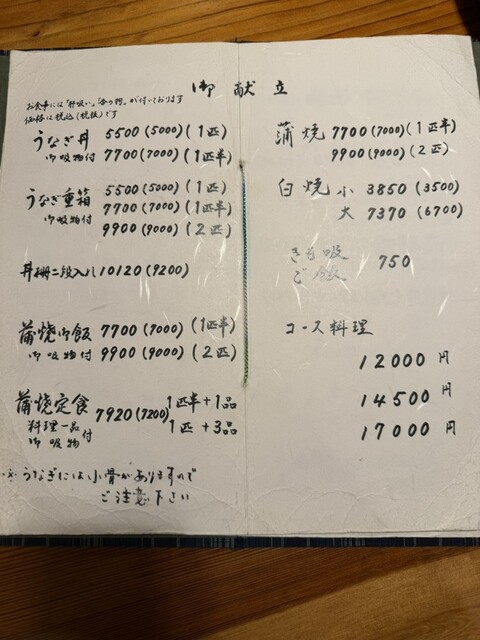 御献立
お食事には「肝吸い」「香の物」が付いております
価格は税込(税抜)です
うなぎ丼 5500(5000)(1匹)
御吸物付 7700(7000)(1匹半)
うなぎ重箱 5500(5000)(1匹)
御吸物付 7700(7000)(1匹半)
9900(9000)(2匹)
丼柵二段入り 10120(9200)
蒲焼御飯 7700(7000)(1匹半)
御吸物付 9900(9000)(2匹)
蒲焼定食 7920(7200) 1匹半+1品
料理一品 御吸物付 1匹+3品
※うなぎには小骨がありますので
ご注意下さい
蒲焼 7700(7000)(1匹半)
9900(9000)(2匹)
白焼 小 3850(3500)
大 7370(6700)
きも吸
ご飯 750
コース料理
12000円
14500円
17000円